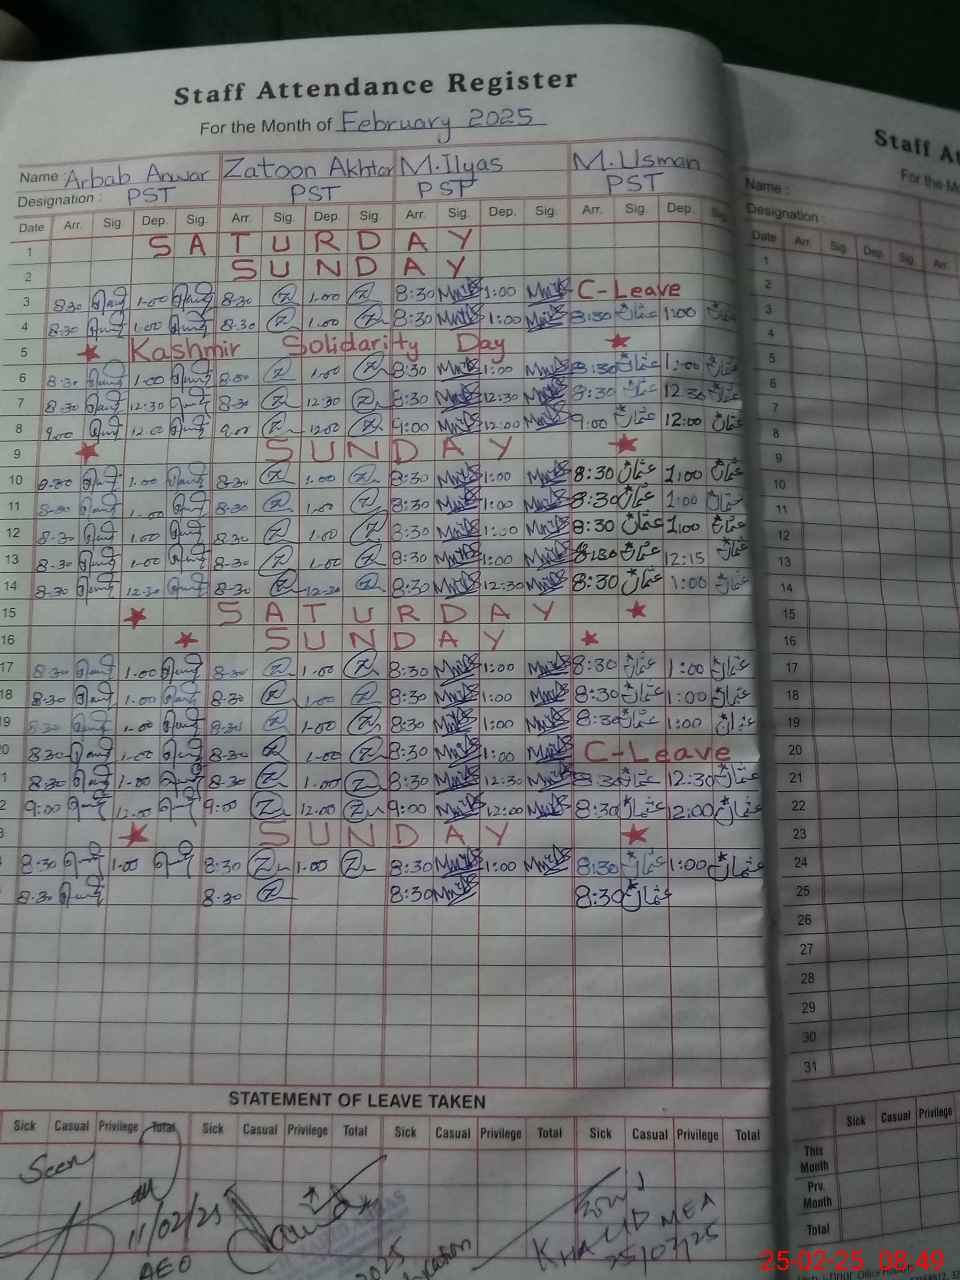 Staff Attendance Register
For the Month of February 2025
Name : Arbab Anwar Zatoon Akhtar M.Ilyas M.Usman
Designation : PST PST PST PST
Date Arr. Sig. Dep. Sig. Arr. Sig. Dep. Sig. Arr. Sig. Dep. Sig. Arr. Sig. Dep. Sig.
1 SATURDAY
2 SUNDAY
3 8.30 1.00 8.30 1.00 8:30 1:00 C-Leave
4 8.30 1.00 8.30 1.00 8:30 1:00 8:30 عثمان 1:00 عثمان
5 ★ Kashmir Solidarity Day ★
6 8.30 1.00 8.30 1.00 8:30 1:00 8:30 عثمان 1:00 عثمان
7 8.30 12.30 8.30 12.30 8:30 12:30 8:30 عثمان 12:30 عثمان
8 9.00 12.00 9.00 12.00 9:00 12:00 9:00 عثمان 12:00 عثمان
9 ★ SUNDAY ★
10 8.30 1.00 8.30 1.00 8:30 1:00 8:30 عثمان 1:00 عثمان
11 8.30 1.00 8.30 1.00 8:30 1:00 8:30 عثمان 1:00 عثمان
12 8.30 1.00 8.30 1.00 8:30 1:00 8:30 عثمان 1:00 عثمان
13 8.30 1.00 8.30 1.00 8:30 1:00 8:30 عثمان 12:15 عثمان
14 8.30 12.30 8.30 12.30 8:30 12:30 8:30 عثمان 1:00 عثمان
15 ★ SATURDAY ★
16 ★ SUNDAY ★
17 8.30 1.00 8.30 1.00 8:30 1:00 8:30 عثمان 1:00 عثمان
18 8.30 1.00 8.30 1.00 8:30 1:00 8:30 عثمان 1:00 عثمان
19 8.30 1.00 8.30 1.00 8:30 1:00 8:30 عثمان 1:00 عثمان
20 8.30 1.00 8.30 1.00 8:30 1:00 C-Leave
21 8.30 1.00 8.30 1.00 8:30 12:30 8:30 عثمان 12:30 عثمان
22 9:00 12.00 9:00 12.00 9:00 12:00 8:30 عثمان 12:00 عثمان
23 ★ SUNDAY ★
24 8:30 1.00 8:30 1.00 8:30 1:00 8:30 عثمان 1:00 عثمان
25 8.30 8.30 8:30 8:30 عثمان
STATEMENT OF LEAVE TAKEN
Sick Casual Privilege Total Sick Casual Privilege Total Sick Casual Privilege Total Sick Casual Privilege Total
Seen
11/02/25
AEO
2025
KHALID MEA
25/02/25
Staff At
For the Mo
Name :
Designation :
Date Arr. Sig. Dep. Sig. Arr.
1
2
3
4
5
6
7
8
9
10
11
12
13
14
15
16
17
18
19
20
21
22
23
24
25
26
27
28
29
30
31
Sick Casual Privilege
This Month
Prv. Month
Total
25-02-25 08:49